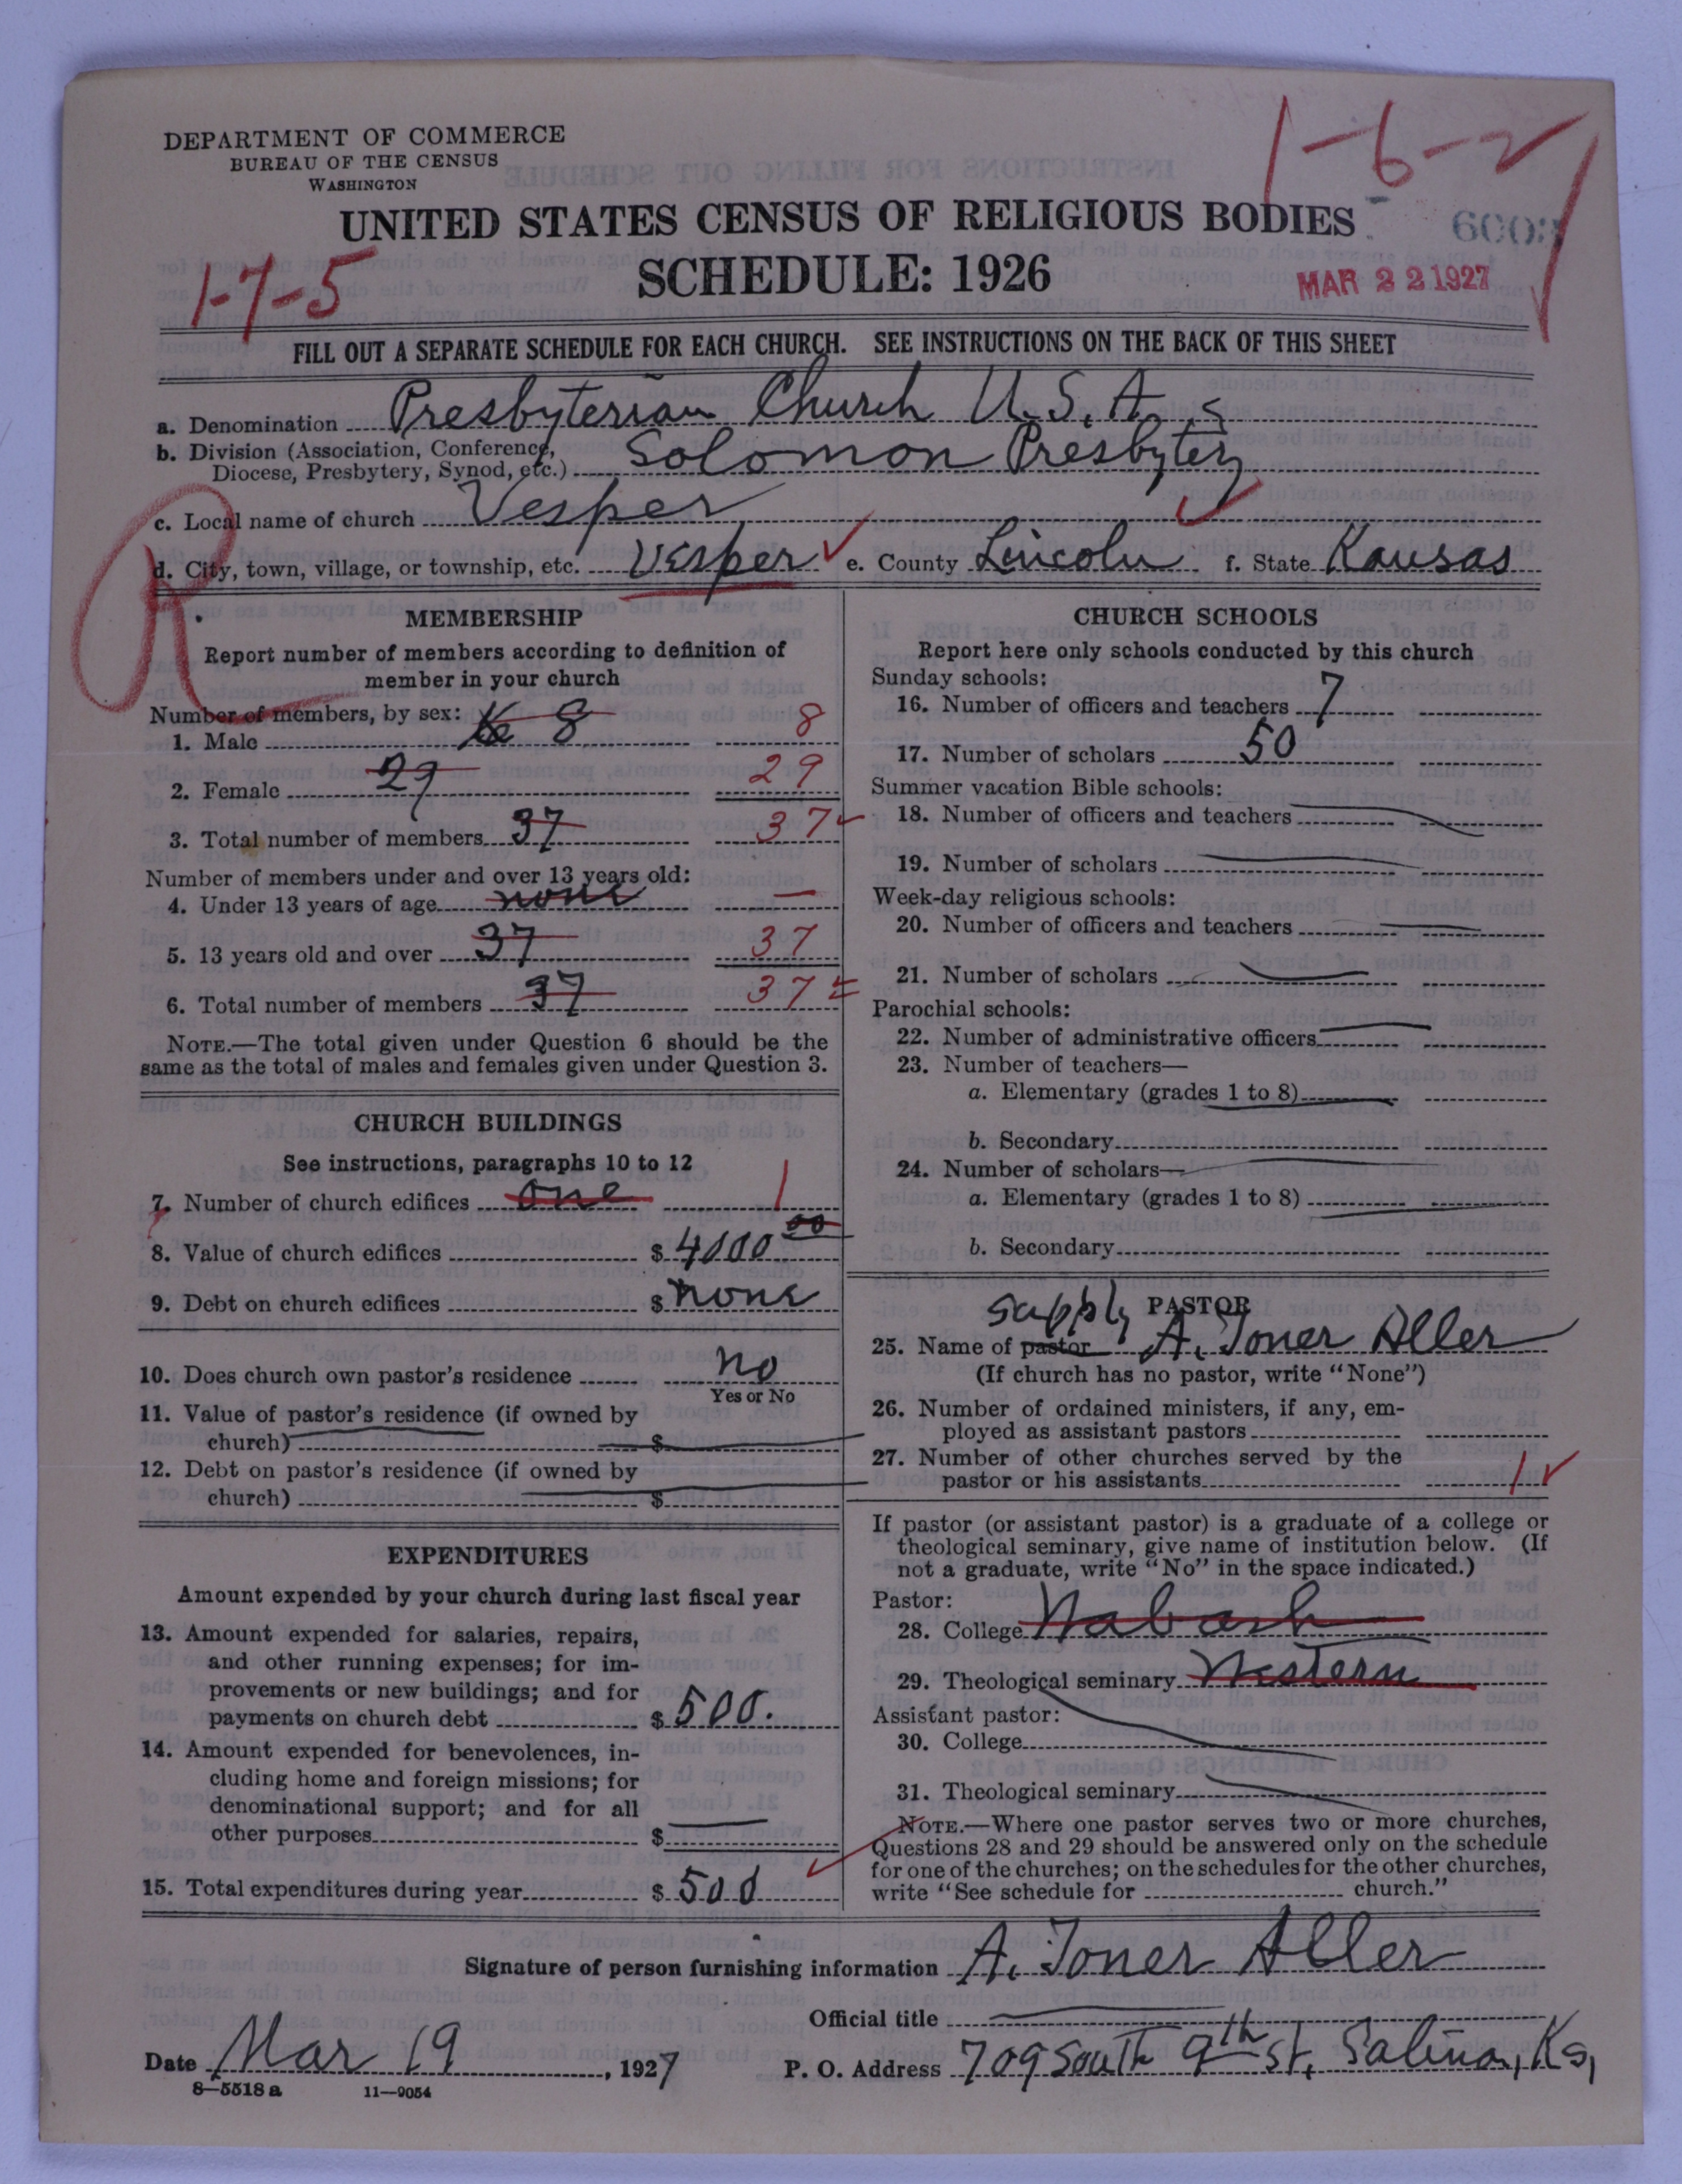 DEPARTMENT OF COMMERCE
BUREAU OF THE CENSUS
WASHINGTON
1-6-2
UNITED STATES CENSUS OF RELIGIOUS BODIES
1-7-5
SCHEDULE: 1926
MAR 22 1927
FILL OUT A SEPARATE SCHEDULE FOR EACH CHURCH. SEE INSTRUCTIONS ON THE BACK OF THIS SHEET
a. Denomination Presbyterian Church U.S.A.
b. Division (Association, Conference,
Diocese, Presbytery, Synod, etc.) Solomon Presbytery
c. Local name of church Vesper
R
d. City, town, village, or township, etc. Vesper e. County Lincoln f. State Kansas
MEMBERSHIP
Report number of members according to definition of
member in your church
Number of members, by sex:
1. Male 8 8
2. Female 29 29
3. Total number of members 37 37
Number of members under and over 13 years old:
4. Under 13 years of age none —
5. 13 years old and over 37 37
6. Total number of members 37 37
NOTE.—The total given under Question 6 should be the
same as the total of males and females given under Question 3.
CHURCH BUILDINGS
See instructions, paragraphs 10 to 12
7. Number of church edifices one 1
8. Value of church edifices $ 4000 00
9. Debt on church edifices $ none
10. Does church own pastor's residence no
Yes or No
11. Value of pastor's residence (if owned by
church) $
12. Debt on pastor's residence (if owned by
church) $
EXPENDITURES
Amount expended by your church during last fiscal year
13. Amount expended for salaries, repairs,
and other running expenses; for im-
provements or new buildings; and for
payments on church debt $ 500.
14. Amount expended for benevolences, in-
cluding home and foreign missions; for
denominational support; and for all
other purposes $
15. Total expenditures during year $ 500
CHURCH SCHOOLS
Report here only schools conducted by this church
Sunday schools:
16. Number of officers and teachers 7
17. Number of scholars 50
Summer vacation Bible schools:
18. Number of officers and teachers
19. Number of scholars
Week-day religious schools:
20. Number of officers and teachers
21. Number of scholars
Parochial schools:
22. Number of administrative officers
23. Number of teachers—
a. Elementary (grades 1 to 8)
b. Secondary
24. Number of scholars—
a. Elementary (grades 1 to 8)
b. Secondary
PASTOR
supply
25. Name of pastor A. Toner Aller
(If church has no pastor, write "None")
26. Number of ordained ministers, if any, em-
ployed as assistant pastors
27. Number of other churches served by the
pastor or his assistants 1
If pastor (or assistant pastor) is a graduate of a college or
theological seminary, give name of institution below. (If
not a graduate, write "No" in the space indicated.)
Pastor:
28. College Wabash
29. Theological seminary Western
Assistant pastor:
30. College
31. Theological seminary
NOTE.—Where one pastor serves two or more churches,
Questions 28 and 29 should be answered only on the schedule
for one of the churches; on the schedules for the other churches,
write "See schedule for church."
Signature of person furnishing information A. Toner Aller
Official title
Date Mar 19, 1927 P. O. Address 709 South 9th St, Salina, Ks,
8-5518 a 11-9054